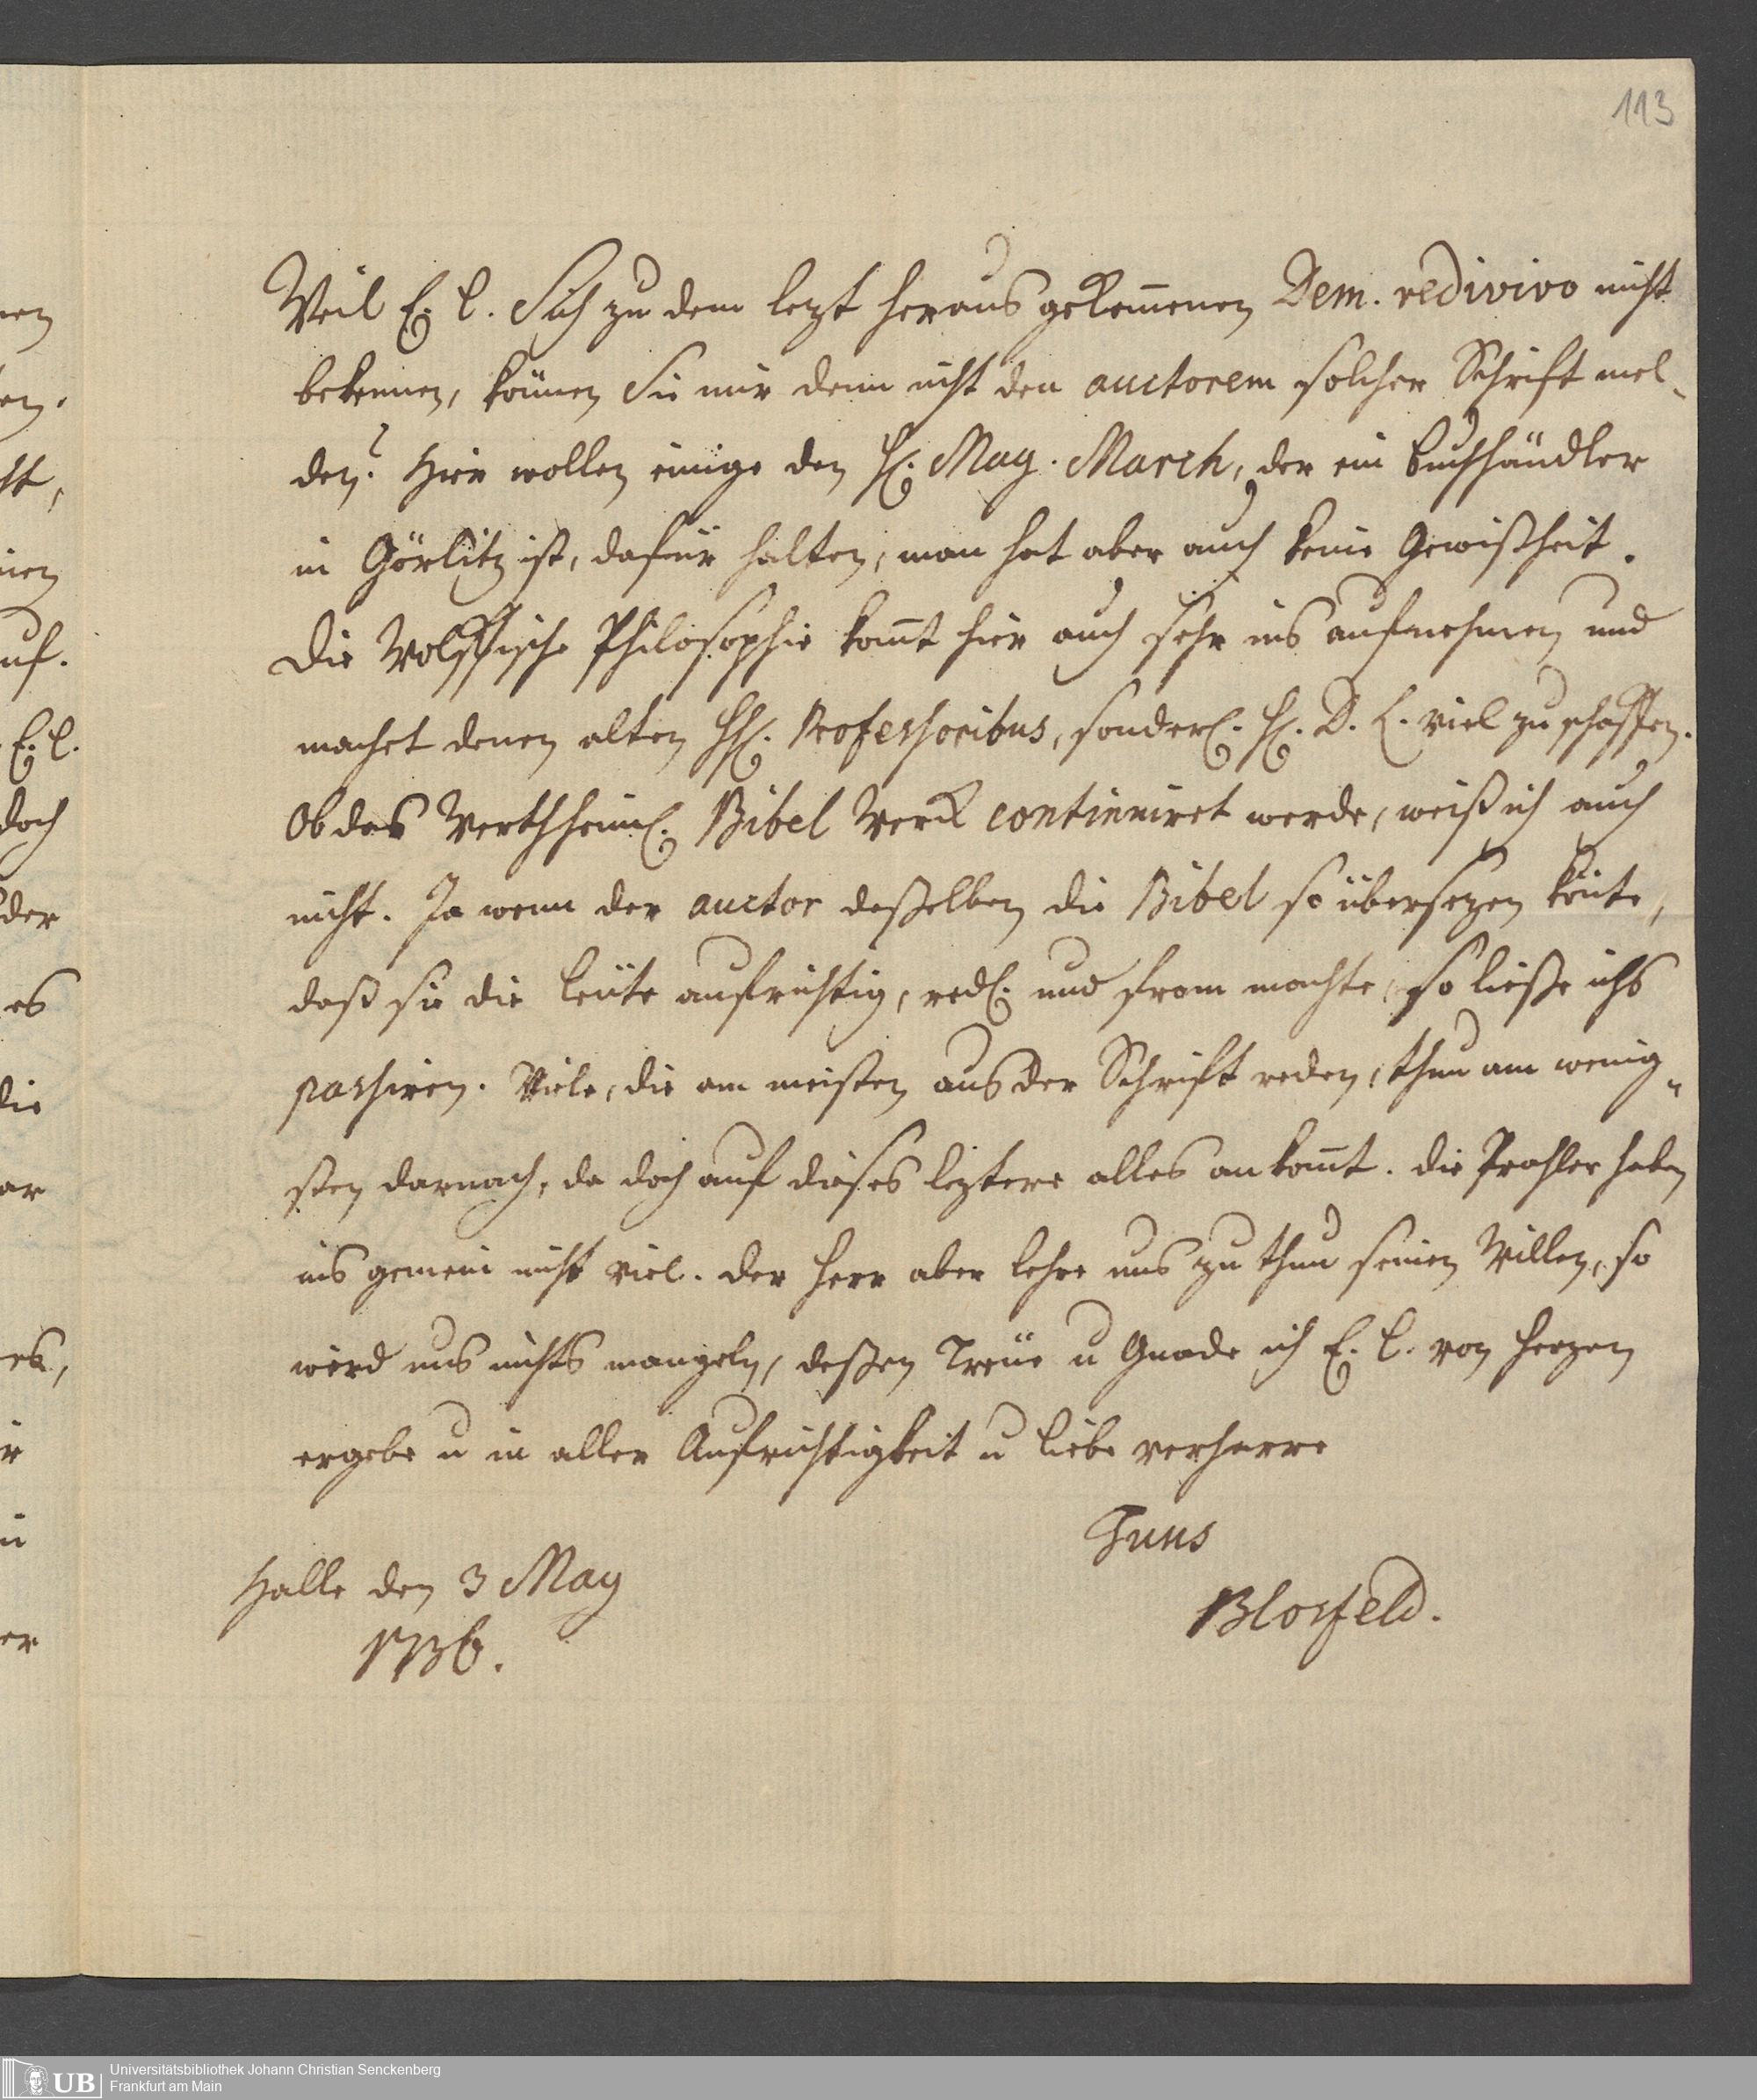 113
Weil E. l. Sich zu dem lezt heraus gekomenen Dem. redivivo nicht
bekennen, können Sie mir denn nicht den auctorem solcher Schrift mel-
den? Hier wollen einige den H. Mag. March, der ein Buchhändler
in Görlitz ist, dafür halten, man hat aber auch keine Gewißheit.
Die Wolffische Philosophie komt hier auch sehr ins aufnehmen und
machet denen alten HH. Professoribus, sonderl. H. D. L. viel zu schaffen.
Ob das Werthheiml. Bibel Werck continuiret werde, weiß ich auch
nicht. Ja wenn der auctor deßelben die Bibel so übersezen könte,
daß sie die Leüte aufrichtig, redl. und from machte, so ließe ichs
passiren. Viele, die am meisten aus der Schrift reden, thun am wenig-
sten darnach, da doch auf dieses leztere alles ankomt. Die Prahler haben
ins gemein nicht viel. Der Herr aber lehre uns zu thun seinen Willen, so
wird uns nichts mangeln, deßen Treüe u Gnade ich E. l. von Herzen
ergebe u in aller Aufrichtigkeit u Liebe verharre
Tuus
Halle den 3 May
Blosfeld.
1736.
nen
en.
ht,
inen
uf.
E. l.
doch
der
es
die
ar
es,
ir
er
UB Universitätsbibliothek Johann Christian Senckenberg
Frankfurt am Main